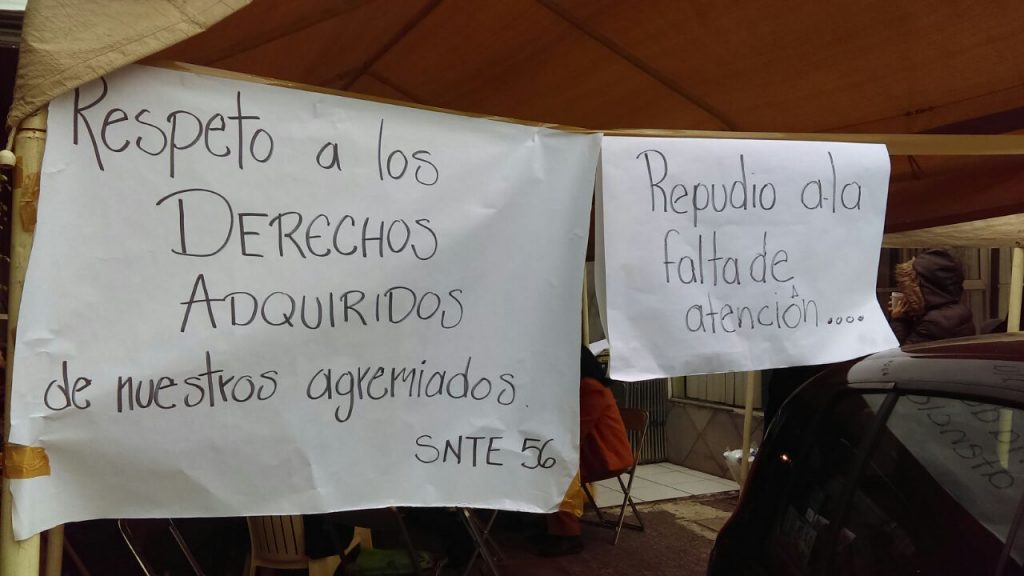 Respeto a los
DERECHOS
ADQUIRIDOS
de nuestros agremiados.
SNTE 56
Repudio a la
falta de
atención....